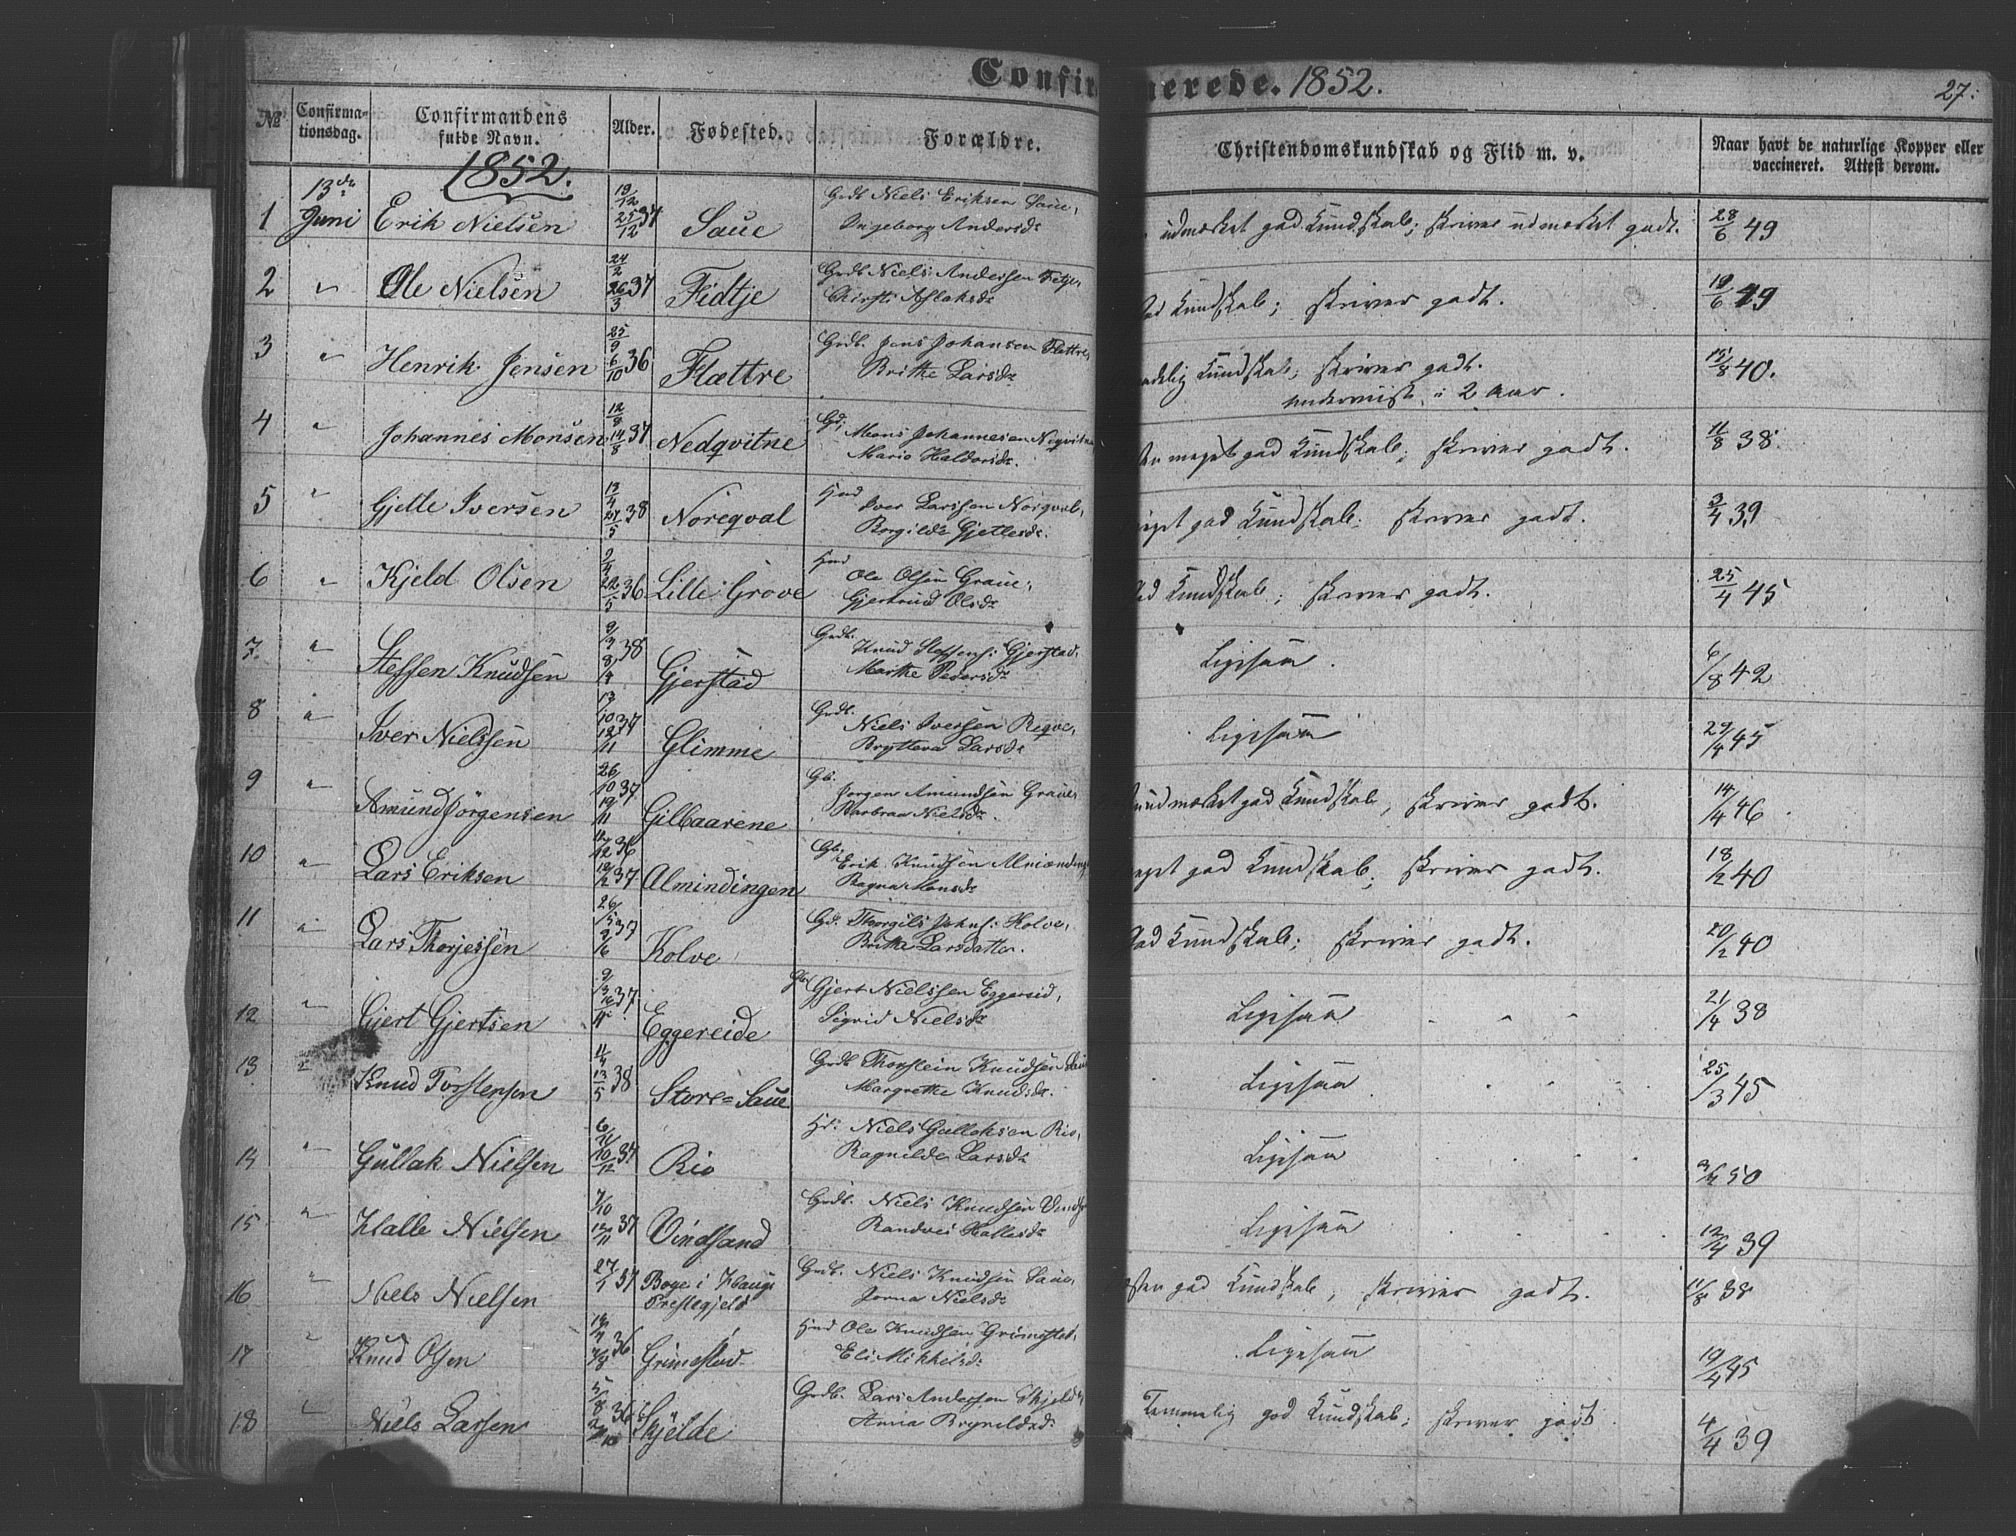 Confirmerede. 1852.
27.
No Confirmationsdag. Confirmandens fulde Navn. Alder. Fødested. Forældre. Christendomskundskab og Flid m. v. Naar havt de naturlige Kopper eller vaccineret. Attest derom.
1852.
13de
1 Juni Erik Nielsen 19/12 25/12 37 Saue Grdb Niels Eriksen Saue, Ingeborg Andersdr udmærket god Kundskab; skriver udmærket godt. 28/6 49
2 " Ole Nielsen 24/2 26/3 37 Fidtje Grdb Niels Andersen Fetje, Christi Aslaksdr god Kundskab; skriver godt. 19/6 49
3 " Henrik Jensen 25/9 6/10 36 Flættre Grdb. Jens Johansen Flettre, Britke Larsdr Kundskab; skriver godt. undervist i 2 Aar. 15/8 40.
4 " Johannes Monsen 12/8 14/8 37 Nedqvitne Gd. Mons Johannesen Neqvitne Mario Haldorsdr. meget god Kundskab; skriver godt. 11/8 38
5 " Gjelle Iversen 13/4 27/5 38 Noreqval Hmd Iver Larssen Norqval, Borgilde Gjellesdr. meget god Kundskab; skriver godt. 3/4 39
6 " Kjeld Olsen 2/4 22/5 36 Lille Grove Hmd Ole Olsen Graue, Gjertrud Olsdr god Kundskab; skriver godt. 25/4 45
7. " Steffen Knudsen 9/3 8/4 38 Gjerstad Grdb. Knud Steffens: Gjerstad. Marthe Pedersdr Ligesaa. 6/8 42
8 " Iver Nielssen 13/10 12/11 37 Glimme Grdb. Niels Iversen Reqve, Brytteva Larsdr Ligesaa 29/4 45
9 " Amund Jörgensen 26/10 19/11 37 Gilbaarene Gb. Jorgen Amundsen Graue, Barbraa Nielsdr. udmærket god Kundskab, skriver godt. 14/4 46
10 " Lars Eriksen 36 12/2 37 Almindingen Gb. Erik Knudsen Ragna Monsdr meget god Kundskab; skriver godt. 18/2 40
11 " Lars Thorjessen 26/5 2/6 37 Kolve Gd. Thorgils Johns: Kolve, Britke Larsdatter. god Kundskab; skriver godt. 20/2 40
12 " Gjert Gjertsen 37. Eggereide Gb Gjert Nielssen Eggereid, Sigrid Nielsdr Ligesaa " " " 21/4 38
13 " Knud Torstensen 11/4 13/5 38 Store=Saue Grdb Thorstein Knudsen Margrethe Knudsdr. Ligesaa 25/3 45
14 " Gullak Nielsen 6/11 10/12 37 Rio Niels Gullaksen Rio, Ragnilde Larsdr Ligesaa 50
15 " Halle Nielsen 7/10 13/11 37 Vindsand Grdb. Niels Knudsen Randvei Hallesdr Ligesaa 12/4 39
16 " Niels Nielsen 27/1 37 Boge i Haugs Prestegjeld Grdb. Niels Knudsen Saue, Jorna Nielsdr god Kundskab; skriver godt. 11/8 38
17 " Knud Olsen 36 Grimestad Hmd Ole Knudsen Grimestad, Eli Mikkelsdr Ligesaa 19/4 45
18 " Niels Larsen 5/8 36 Skjelde Grdb. Lars Andersen Skjelde, Anna Brynildsdr Temmelig god Kundskab; skriver godt. 4/4 39